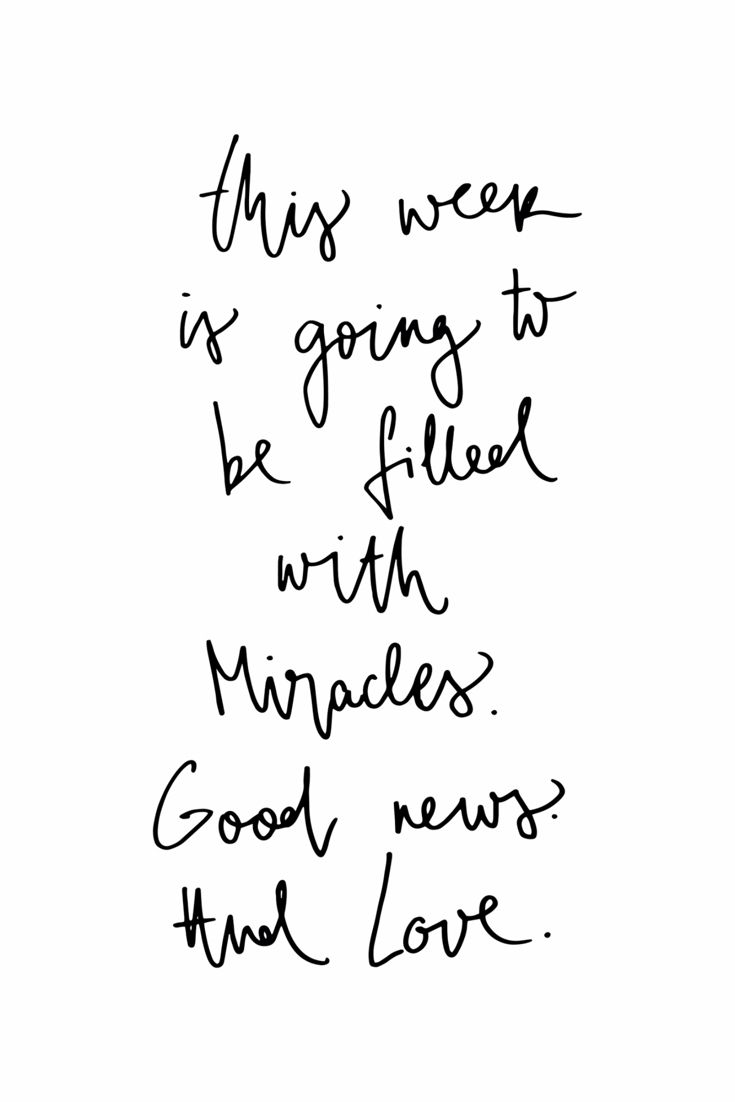 this week
is going to
be filled
with
Miracles.
Good news.
And Love.